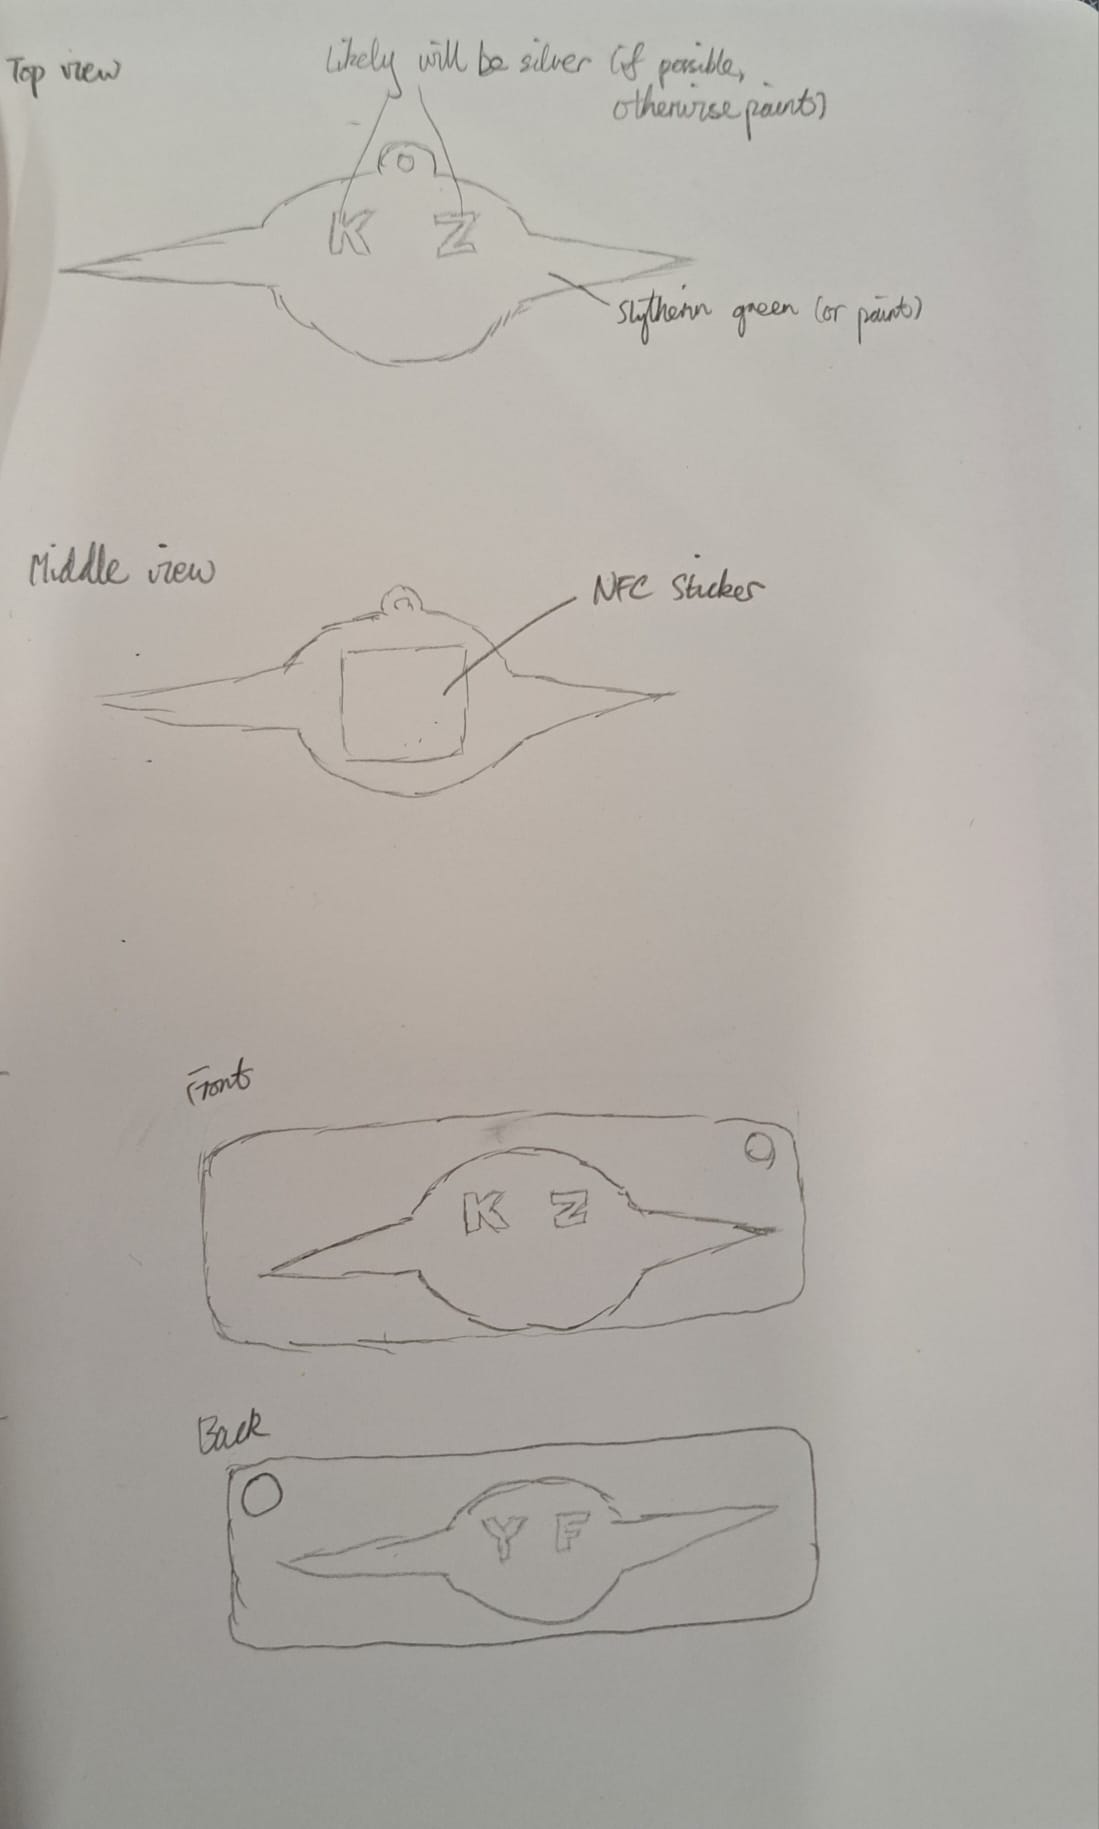 Top view
Likely will be silver (if possible,
otherwise paint)
K Z
Slytherin green (or paint)
Middle view
NFC Sticker
Front
K Z
Back
Y F